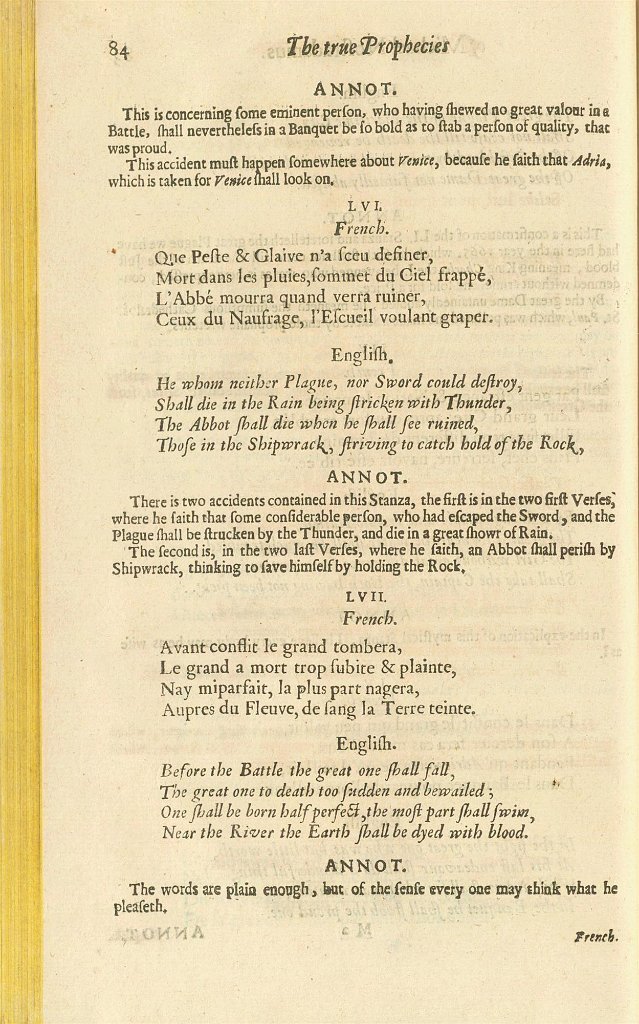 84 The true Prophecies
ANNOT.
This is concerning ſome eminent perſon, who having ſhewed no great valour in a
Battle, ſhall nevertheleſs in a Banquet be ſo bold as to ſtab a perſon of quality, that
was proud.
This accident muſt happen ſomewhere about Venice, becauſe he ſaith that Adria,
which is taken for Venice ſhall look on.
LVI.
French.
Que Peſte & Glaive n'a ſceu definer,
Mort dans les pluies, ſommet du Ciel frappé,
L'Abbé mourra quand verra ruiner,
Ceux du Naufrage, l'Eſcueil voulant graper.
Engliſh.
He whom neither Plague, nor Sword could deſtroy,
Shall die in the Rain being ſtricken with Thunder,
The Abbot ſhall die when he ſhall ſee ruined,
Thoſe in the Shipwrack, ſtriving to catch hold of the Rock,
ANNOT.
There is two accidents contained in this Stanza, the firſt is in the two firſt Verſes,
where he ſaith that ſome conſiderable perſon, who had eſcaped the Sword, and the
Plague ſhall be ſtrucken by the Thunder, and die in a great ſhowr of Rain.
The ſecond is, in the two laſt Verſes, where he ſaith, an Abbot ſhall periſh by
Shipwrack, thinking to ſave himſelf by holding the Rock.
LVII.
French.
Avant conflit le grand tombera,
Le grand a mort trop ſubite & plainte,
Nay miparfait, la plus part nagera,
Aupres du Fleuve, de ſang la Terre teinte.
Engliſh.
Before the Battle the great one ſhall fall,
The great one to death too ſudden and bewailed;
One ſhall be born half perfect, the moſt part ſhall ſwim,
Near the River the Earth ſhall be dyed with blood.
ANNOT.
The words are plain enough, but of the ſenſe every one may think what he
pleaſeth.
French.